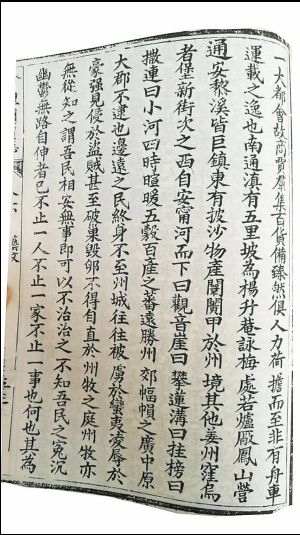 一大都會故商賈羣集百貨備臻然俱人力荷擔而至非有舟車
運載之逸也南通滇有五里坡為楊升菴詠梅處若爐廠鳳山營
通安黎溪皆巨鎮東有披沙物產闤闠甲於州境其他姜州窪烏
者堡新街次之西自安甯河而下曰觀音崖曰攀蓮溝曰拄榜曰
撒連曰小河四時暄暖五穀百產之蕃遠勝州郊幅幁之廣中原
大郡不逮也邊遠之民終身不至州城往往被虜於蠻夷凌辱於
豪強見侵於盜賊甚至破巢毀卵不得自直於州牧之庭州牧亦
無從知之謂吾民相安無事即可以不治治之不知吾民之冤沉
幽鬱無路自伸者已不止一人不止一家不止一事也何也其為
藝文